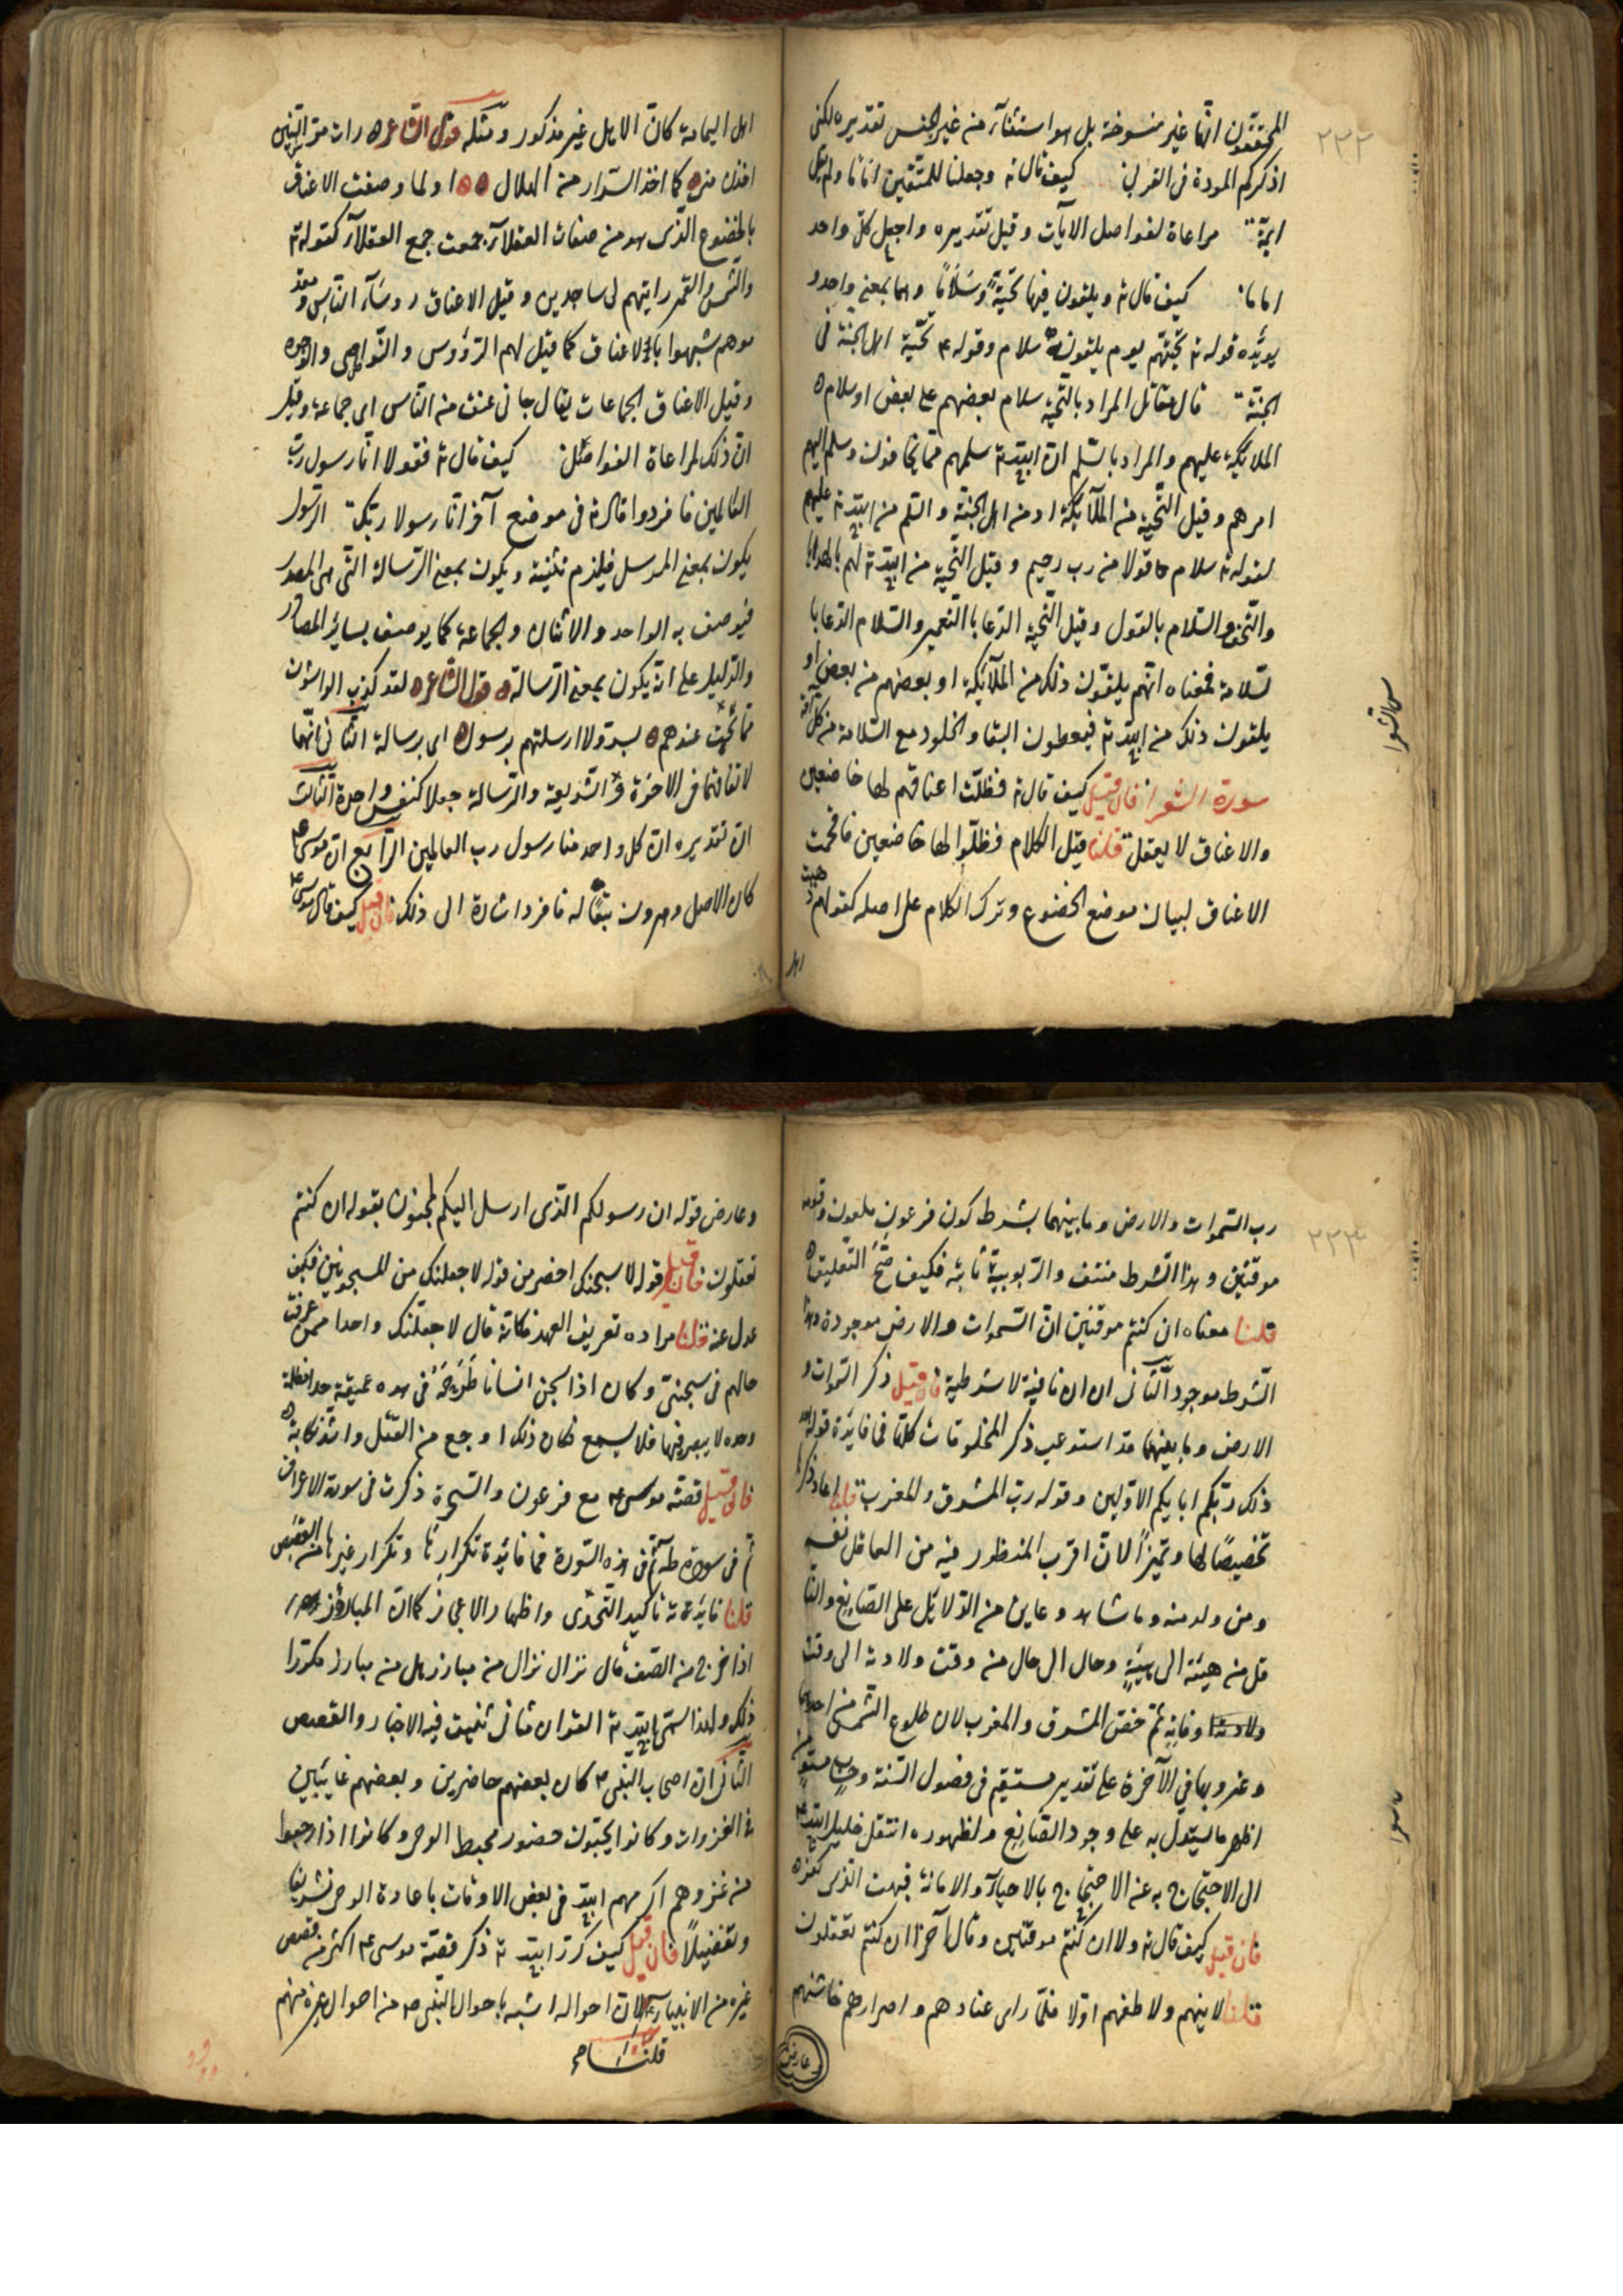 المحققون انها غير منسوخة بل هو استثناء من غير الجنس تقديره لكنى
٢٣٢
اذكركم المودة فى القربى كيف قال ته وجعلنا للمتقين اماما ولم يقل
ايمّة مراعاة لفواصل الآيات وقيل تقديره واجعل كل واحد
اماما كيف قال ته ويلقون فيها تحيّة وسَلامًا وهما بمعنى واحد و
يويّده قوله ته تحيّتهم يوم يلقونه سلام وقوله ته تحيّة اهل الجنة فى
الجنّة قال مقاتل المراد بالتحيّة سلام بعضهم على بعض او سلام
الملايكة عليهم والمراد بالسّلم ان الله ته سلمهم مما يخافون وسلم اليهم
امرهم وقيل التّحيّة من الملآئكة او من اهل الجنّة والسّلم من الله ته عليهم
لقوله ته سلام قولا من رب رحيم وقيل التّحيّة من الله ته لهم بالهدايا
والتّحف والسّلام بالقول وقيل التّحيّة الدّعا بالتّعمير والسّلام الدّعا با
لسّلامة فمعناه انّهم يلقّون ذلك من الملآئكة او بعضهم من بعض او
يلقون ذلك من الله ته فيعطون البقا والخلود مع السّلامة من كل آفة
سورة الشعرا فان قيل كيف قال ته فظلّت اعناقهم لها خاضعين
سورة الشعرا
والاعناق لا يعقل قلنا قيل الكلام فظلّوا لها خاضعين فاقحمت
الاعناق لبيان موضع الخضوع وترك الكلام على اصله كقولهم ذهبت
اهل
اهل اليمامة كانّ الاهل غير مذكور ومثله قول الشاعر رات مرّ السنين
اخذن منى كما اخذ السّرار من الهلال او لما وصفت الاعناق
بالخضوع الّذى هو من صفات العقلآء جمعت جمع العقلآء كقوله ته
والشّمس والقمر رايتهم لى ساجدين وقيل الاعناق روسَآء النّاس ومقد
موهم شبهوا بالاعناق كما قيل لهم الرّؤوس والنّواصى والوجوه
وقيل الاعناق الجماعات يقال جانى عنق من النّاس اى جماعة وقيل
انّ ذلك لمراعاة الفواصل كيف قال ته فقولا انّا رسول ربّ
العالمين فافردوا قال ته فى موضع آخر انّا رسولا ربّك الرّسول
يكون بمعنى المرسل فيلزم تثنيته ويكون بمعنى الرّسالة الّتى هى المصدر
فيوصف به الواحد والاثنان والجماعة كما يوصف بسائر المصادر
والدّليل على انّه يكون بمعنى الرّسالة قول الشاعر لقد كذب الواشون
ما بُحْت عندهم بسرّ ولا ارسلتهم برسول اى برسالة الثّانى انّهما
لاتّفاقهما فى الاخوّة والشّريعة والرّسالة جعلا كنفس واحدة الثّالث
انّ تقديره انّ كل واحد منا رسول رب العالمين الرّابع ان موسى عم
كان الاصل وهرون تبعًا له فافرد اشارة الى ذلك فان قيل كيف قال موسى عم
رب السّموات والارض وما بينهما بشرط كون فرعون ملعون وقومه
٢٣٣
موقنين وهذا الشّرط منتف والرّبوبيّة ثابتة فكيف صَحّ التّعليق
قلنا معناه ان كنتم موقنين انّ السّموات والارض موجودة وهذا
الشّرط موجود الثّانى ان ان نافية لا شرطية فان قيل ذكر السّموات و
الارض وما بينهما قد استوعب ذكر المخلوقات كلّها فما فايدة قوله بعد
ذلك ربّكم ابايكم الاوّلين وقوله ربّ المشرق والمغرب قلنا اعاد ذكرها
تخصيصًا لها وتميزًا لان اقرب المنظور فيه من العاقل نفسه
ومن ولد منه وما شاهد وعاين من الدّلائل على الصّانع والنّا
قل من هيئة الى هيئةٍ وحال الى حال من وقت ولادته الى وقت
وفاته ثمّ خصّ المشرق والمغرب لان طلوع الشّمس من احدهما
وغروبها فى الآخرة على تقدير مستقيم فى فصول السّنة وحساب مستوٍ من
اظهر ما يستدل به على وجود الصّانع ولظهوره انتقل خليل الله عم
الى الاحتجاج به عن الاحتجاج بالاحياء والاماتة فبهت الّذى كفر
فان قيل كيف قال ته ولا ان كنتم موقنين وقال آخرًا ان كنتم تعقلون
قلنا لاينهم ولاطفهم اوّلا فلمّا راى عنادهم واصرارهم خاشنهم
وعارض
وعارض قوله ان رسولكم الّذى ارسل اليكم لمجنون بقوله ان كنتم
تعقلون فان قيل قوله لاسجننك اخصر من قوله لاجعلنك من المسجونين فكيف
عدل عنه قلنا مراده تعريف العهد فكانّه قال لاجعلنّك واحدا ممن عرفت
حالهم فى سجنى وكان اذا سجن انسانا طَرَحَهُ فى هوّه عميقة جدا مظلمة
وحده لا يبصر فيها فلا يسمع فكان ذلك اوجع من القتل واشدّ نكاية
فان قيل قصّة موسى عم مع فرعون والسّحرة ذكرت فى سورة الاعراف
ثم فى سورة طه ثمّ فى هذه السّورة فما فائدة تكرارها وتكرار غيرها من القصص
قلنا فايدته تاكيد التّحدّى واظهار الاعجاز كما ان المبارز
اذا خرج من الصّف قال نزال نزال من مبارز هل من مبارز مكررا
ذلك ولهذا سمّى الله ته القران مثانى ثنيت فيه الاخبار والقصص
الثّانى ان اصحاب النّبى ص كان بعضهم حاضرين وبعضهم غايبين
فى الغزوات وكانوا يحبّون حضور مهبط الوحى وكانوا اذا رجعوا
من غزوهم اكرمهم الله فى بعض الاوقات باعادة الوحى تشريفا
وتفضيلًا فان قيل كيف كرّر الله ته ذكر قصّة موسى عم اكثر من قصص
غيره من الانبياء لان احواله اشبه باحوال النّبى ص من احوال غيره منهم
قلنا صح